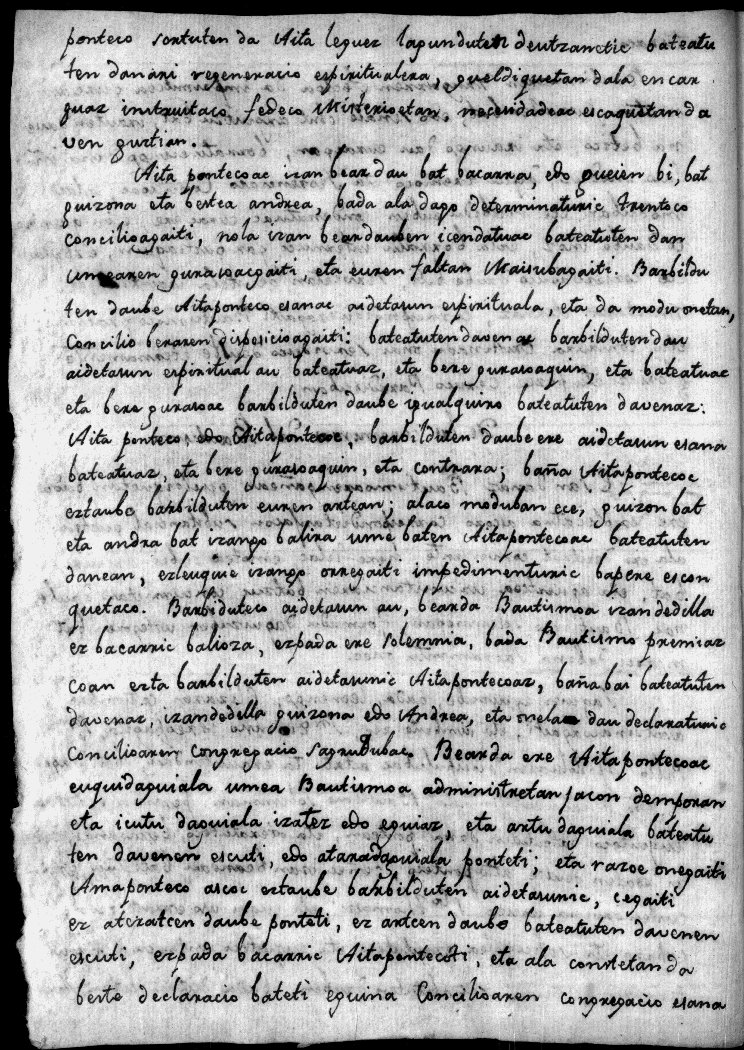 ponteco sortuten da Aita leguez lagunduten deutzanetic bateatu
ten danari regeneracio espiritualera, gueldiquetan dala encar
guaz instruitaco fedeco Misterioetan, necesidadeac escaquetan da
uen gustian.
Aita pontecoac izan bear dau bat bacarra, edo gueien bi, bat
guizona eta bestea andrea, bada ala dago determinaturic trentoco
Concilioagaiti, nola izan beardauben icendatuac bateatuten dan
umearen gurasoacgaiti, eta euren faltan Maisubagaiti. Barbildu
ten daube Aitaponteco esanac aidetasun espirituala, eta da modu onetan,
Concilio beraren disposicioagaiti: bateatutendavenac barbildutendau
aidetasun espiritual au bateatuaz, eta bere gurasoaquin, eta bateatuac
eta bere gurasoac barbilduten daube ygualquiro bateatuten davenaz:
Aita ponteco edo Aitapontecoc, barbilduten daube ere aidetasun esana
bateatuaz, eta bere gurasoaquin, eta contrara; baña Aitapontecoc
eztaube barbilduten euren artean; alaco moduban ece, guizon bat
eta andra bat izango balira ume baten Aitapontecoac bateatuten
danean, ezleuquie izango orregaiti impedimenturic bapere escon
quetaco. Barbiduteco aidetasun au, bearda Bautismoa izandedilla
ez bacarric balioza, ezpada ere solemnia, bada Bautismo premiaz
coan ezta barbilduten aidetasunic Aitapontecoaz, baña bai bateatuten
davenaz, izandedilla guizona edo Andrea, eta onela dau declaraturic
Concilioaren Congregacio Sagradubac. Bearda ere Aitapontecoac
euquidaguiala umea Bautismoa administretan jacon demporan
eta icutu daguiala izatez edo eguiaz, eta artu daguiala bateatu
ten davenen escuti, edo ataradaguiala ponteti; eta razoe onegaiti
Amaponteco ascoc eztaube barbilduten aidetasunic, cegaiti
ez ateratcen daube ponteti, ez artcen daube bateatuten davenen
escuti, ezpada bacarric Aitapontecoti, eta ala constetan da
beste declaracio bateti eguina Concilioaren congregacio esana